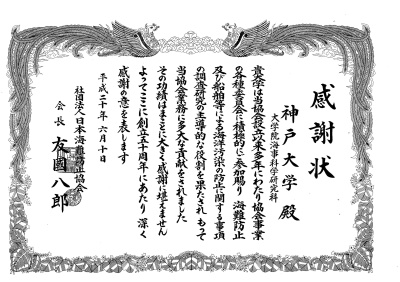 感謝状
大学院海事科学研究科
神戸大学 殿
貴学は当協会設立以来多年にわたり協会事業
の各種委員会に積極的に参加賜り 海難防止
及び船舶等による海洋汚染の防止に関する事項
の調査研究の主導的な役割を果たされ もって
当協会業務に多大な貢献をされました
その功績はまことに大きく感謝に堪えません
よってここに創立五十周年にあたり 深く
感謝の意を表します
平成二十年 六月十日
社団法人日本海難防止協会
会長 友國八郎